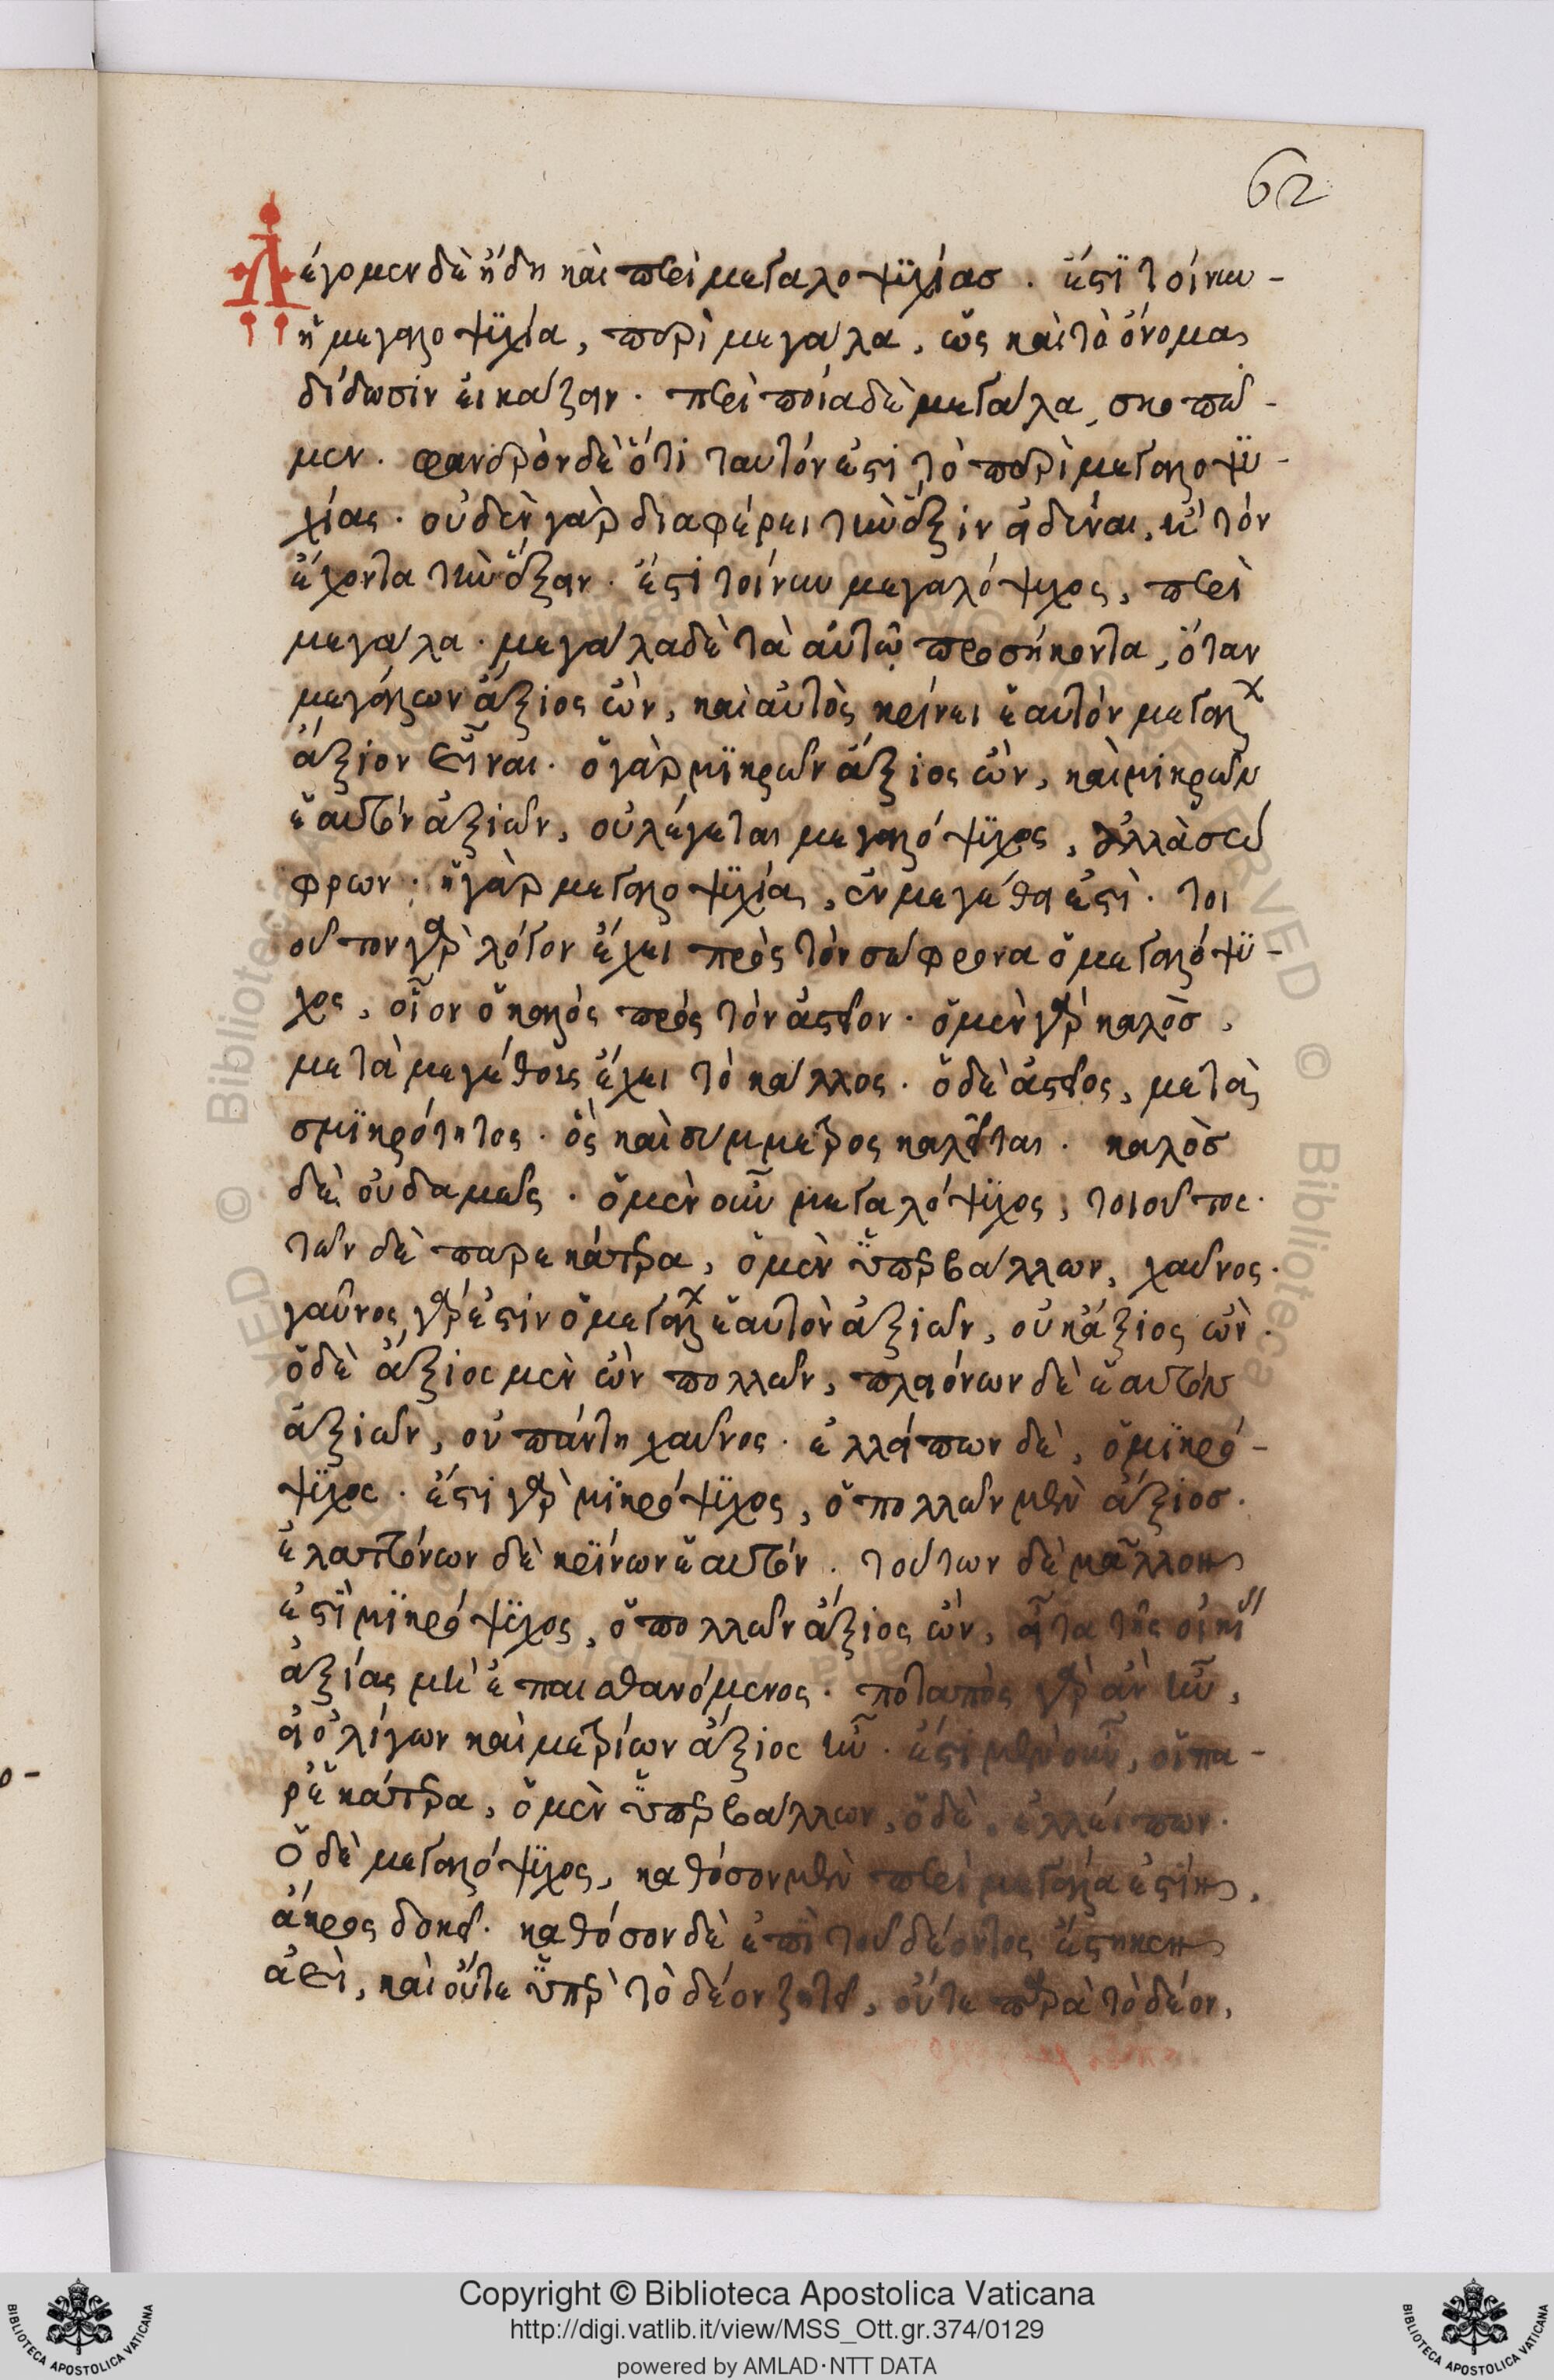 62
Λέγομεν δὲ ἤδη καὶ περὶ μεγαλοψϋχίασ. ἔστϊ τοίνυν-
ἡ μεγαλοψϋχία, περὶ μεγάλα, ὡς καὶ τὸ ὄνομα
δίδωσιν εἰκάζειν. περὶ ποῖα δὲ μεγάλα, σκοπῶ-
μεν. φανερὸν δὲ ὅτι ταυτόν ἐστι τὸ περὶ μεγαλοψϋ-
χίας. οὐδὲν γὰρ διαφέρει τὴν ἕξιν εἰδέναι, ἢ τόν
ἔχοντα τὴν ἕξιν. ἔστι τοίνυν μεγαλόψυχος, περὶ
μεγάλα. μεγάλα δὲ τὰ αὐτῶ προσήκοντα, ὅταν
μεγάλων ἄξιος ὢν, καὶ αὐτὸς κρίνει ἑαυτόν μεγάλων
ἄξιον εἶναι. ὁ γὰρ μϊκρῶν ἄξιος ὢν, καὶ μικρῶν
ἑαυτόν ἀξιῶν, οὐ λέγεται μεγαλόψϋχος, ἀλλὰ σώ
φρων. ἡ γὰρ μεγαλοψϋχία, ἐν μεγέθει ἐστὶ. τοι
οῦτον γὰρ λόγον ἔχει πρὸς τὸν σώφρονα ὁ μεγαλόψϋ-
χος, οἷον ὁ καλός πρός τόν ἀστεῖον. ὁ μὲν γὰρ καλὸσ,
μετὰ μεγέθους ἔχει τό κάλλος. ὁ δὲ ἀστεῖος, μετὰ
σμϊκρότητος. ὃς καὶ σύμμετρος καλεῖται. καλὸσ
δὲ οὐδαμῶς. ὁ μὲν οὖν μεγαλόψϋχος, τοιοῦτος.
τῶν δὲ παρ ἑκάτερα, ὁ μὲν ὑπερβάλλων, χαῦνος.
χαῦνος γάρ ἐστιν ὁ μεγάλων ἑαυτὸν ἀξιῶν, οὐκ ἄξιος ὢν.
ὁ δὲ ἄξιος μὲν ὢν πολλῶν, πλειόνων δὲ ἑαυτόν
ἀξιῶν, οὐ πάντη χαῦνος. ἐλλείπων δὲ, ὁ μϊκρό-
ψϋχος. ἔστι γὰρ μϊκρόψϋχος, ὁ πολλῶν μὲν ἄξιοσ.
ἐλαττόνων δὲ κρϊίνων ἑαυτόν. τούτων δὲ μᾶλλον
ἐστϊ μϊκρόψϋχος, ὁ πολλῶν ἄξιος ὢν, εἶτα τῆς οἰκείας
ἀξίας μὴ ἐπαισθανόμενος. ποταπὸς γὰρ ἂν ἦν,
εἰ ὀλίγων καὶ μετρίων ἄξιος ἦν. ἔστι μὲν οὖν, οἱ πα-
ρ ἑκάτερα, ὁ μὲν ὑπερβάλλων, ὁ δὲ, ἐλλείπων.
Ὁ δὲ μεγαλόψϋχος, καθόσον μὲν περὶ μεγάλα ἐστίν,
ἄκρος δοκεῖ. καθόσον δὲ ἐπὶ τοῦ δέοντος ἔστηκεν
ἀεὶ, καὶ οὔτε ὑπὲρ τὸ δέον ζητεῖ, οὔτε παρὰ τὸ δέον,
Copyright © Biblioteca Apostolica Vaticana
http://digi.vatlib.it/view/MSS_Ott.gr.374/0129
powered by AMLAD·NTT DATA